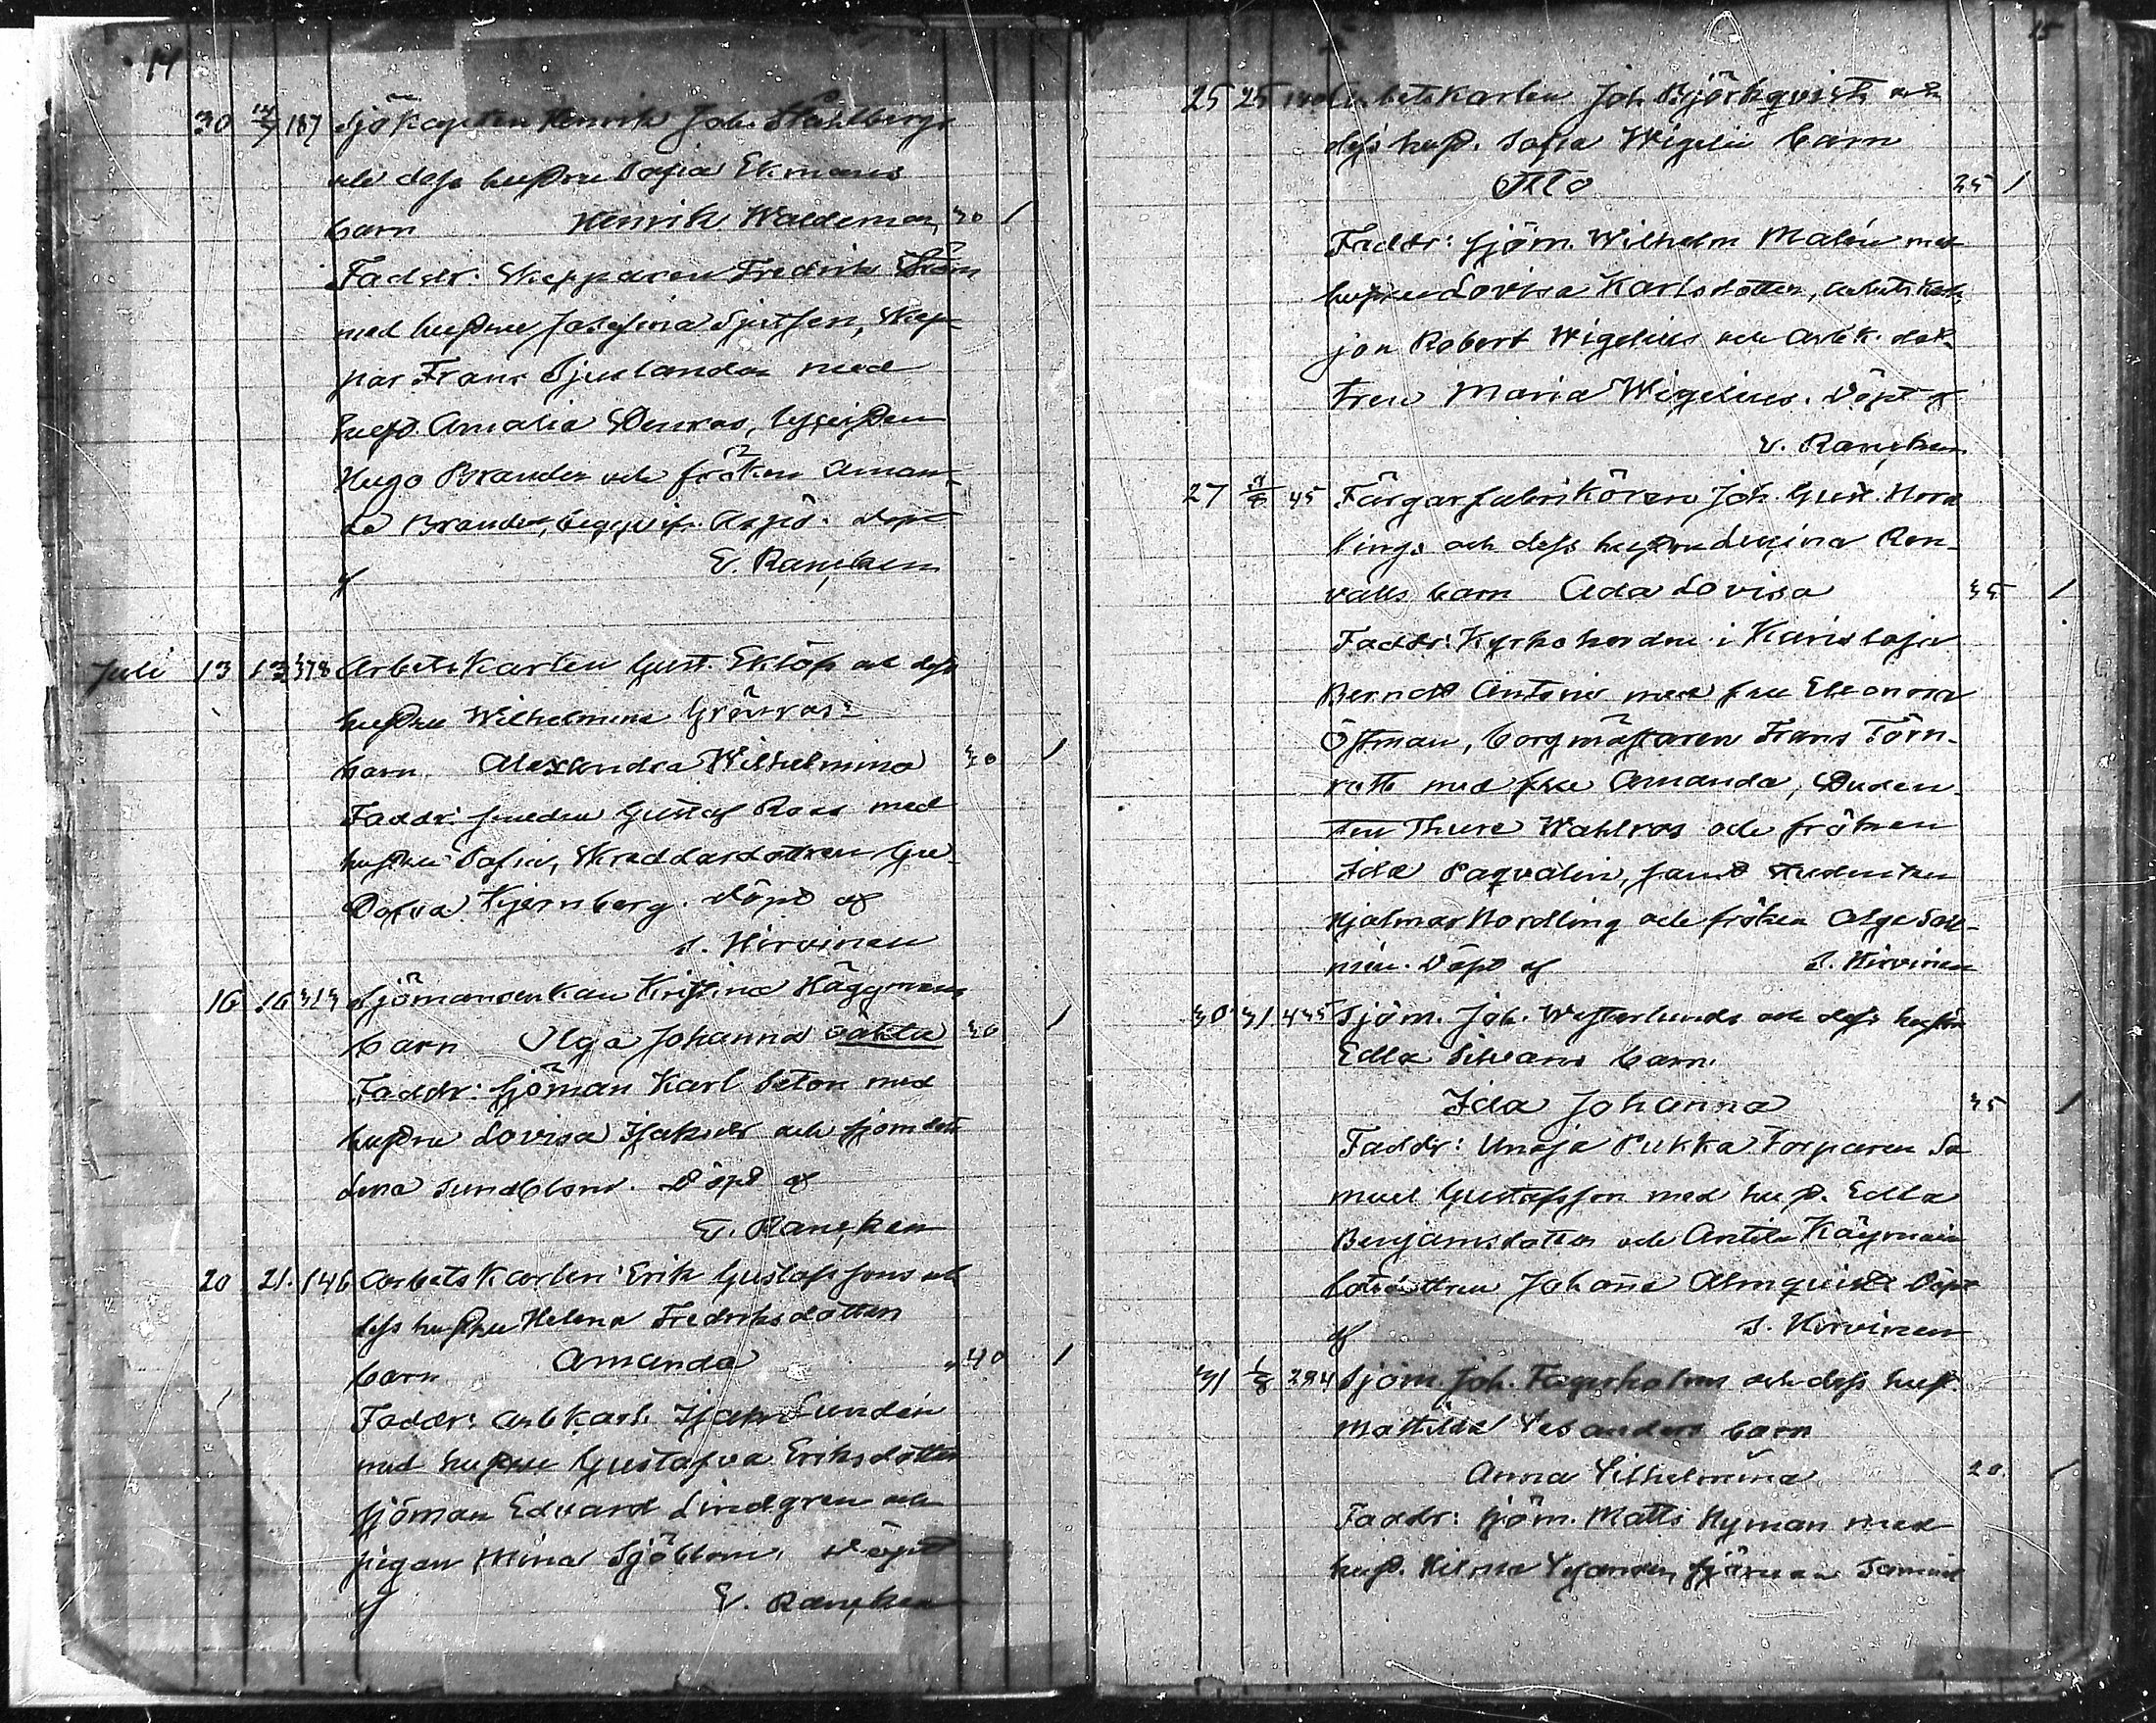 14
30 14/7 187 Sjökapten Henrik Joh. Ståhlbergs
och dess hustru Sofia Ekmans
barn Henrik Waldemar 30 1
Faddr: Skepparen Fredrik Ström
med hustru Josefina Sjutsen, Skep-
par Frans Sjulander med
hust. Amalia Denvas,
Hugo Brander och fröken Aman-
da Brander, Aspö. Döpt
af E. Rancken
Juli 13 13 378 Arbetskarlen Gust. Eklöfs och dess
hustru Wilhelmina Grönroos
barn Alexandra Wilhelmina 30 1
Faddr: smeden Gustaf Roos med
hustru Sofia, Skreddardottren Gu-
Dafva Kjernberg. Döpt af
S. Hirvinen
16 16 313 Sjömansenkan Kristina Häggmans
barn Olga Johanna oäkta 30 1
Faddr: sjöman Karl Seton med
hustru Lovisa Isaksdr och sjömdotr
Lena Sundblom. Döpt af
E. Rancken
20 21 146 Arbetskarlen Erik Gustafssons och
dess hustru Helena Fredriksdotters
barn Amanda 40 1
Faddr: arbkarl. Isak Sundén
med hustru Gustafva Eriksdotter
sjöman Edvard Lindgren och
pigan Mina Sjöblom. Döpt
af E. Rancken
15
25 25 Arbetskarlen Joh. Björkqvists och
dess hust. Sofia Wigelii barn
Otto 35 1
Faddr: sjöm. Wilhelm Malén med
hustru Lovisa Karlsdotter, arbets
son Robert Wigelius och arbk. dot-
tren Maria Wigelius. Döpt af
E. Rancken
27 3/8 45 Färgarfabrikören Joh. Gust. Nord
lings och dess hustru Lucina Ren-
valls barn Ada Lovisa 35 1
Faddr: Kyrkoherden i Karislojo
Berndt Antonio med fru Eleonora
Östman, borgmästaren Frans Törn-
roth med fru Amanda, Studen-
ten Thure Wahlroos och fröken
Ida Paqvalin, samt studenten
Hjalmar Nordling och fröken Olga Sall-
mén. Döpt af S. Hirvinen
30 31 435 Sjöm. Joh. Westerlunds och dess hustru
Edla Silvans barn
Ida Johanna 35 1
Faddr: Unaja Pukka Torparen Sa
muel Gustafsson med hust. Edla
Benjamsdotter och Antila
dottren Johana Almquist. Döpt
af S. Hirvinen
31 1/8 294 Sjöm. Joh. Fagerholms och dess hust.
Mathilda Vesanders barn
Anna Vilhelmina 20 1
Faddr: sjöm. Matts Nyman med
hust. Hilma Vesander, sjöman